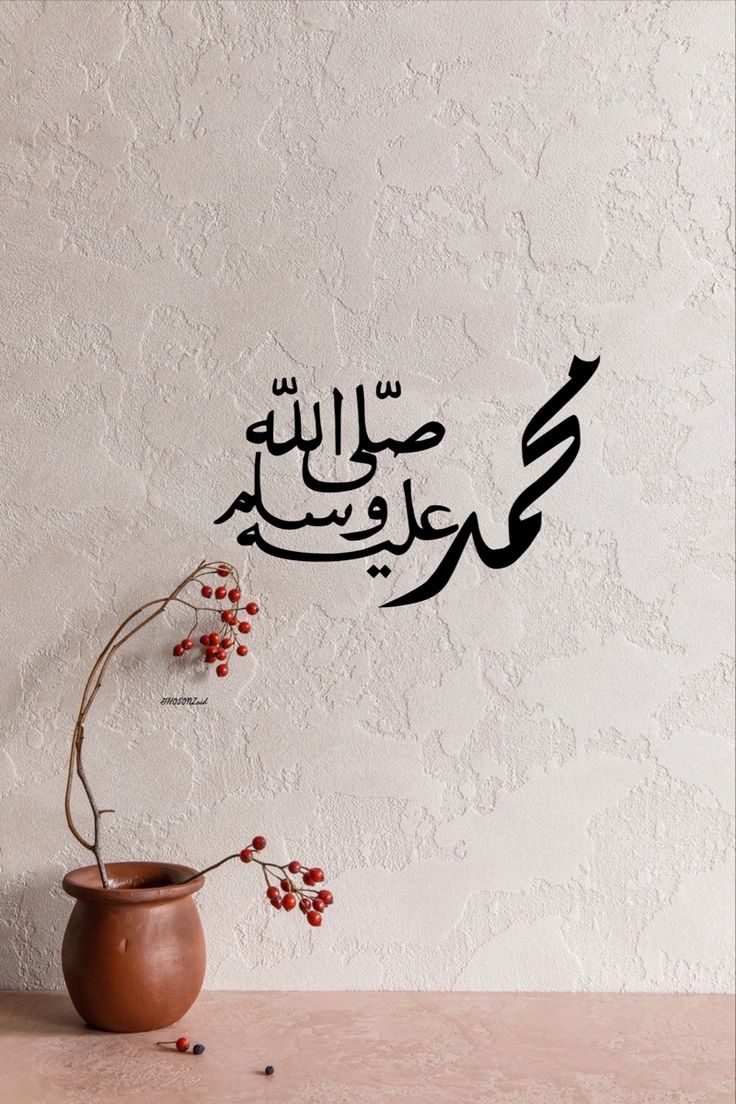 محمد
صلّى اللّه
عليه وسلم
@HOSONZaid